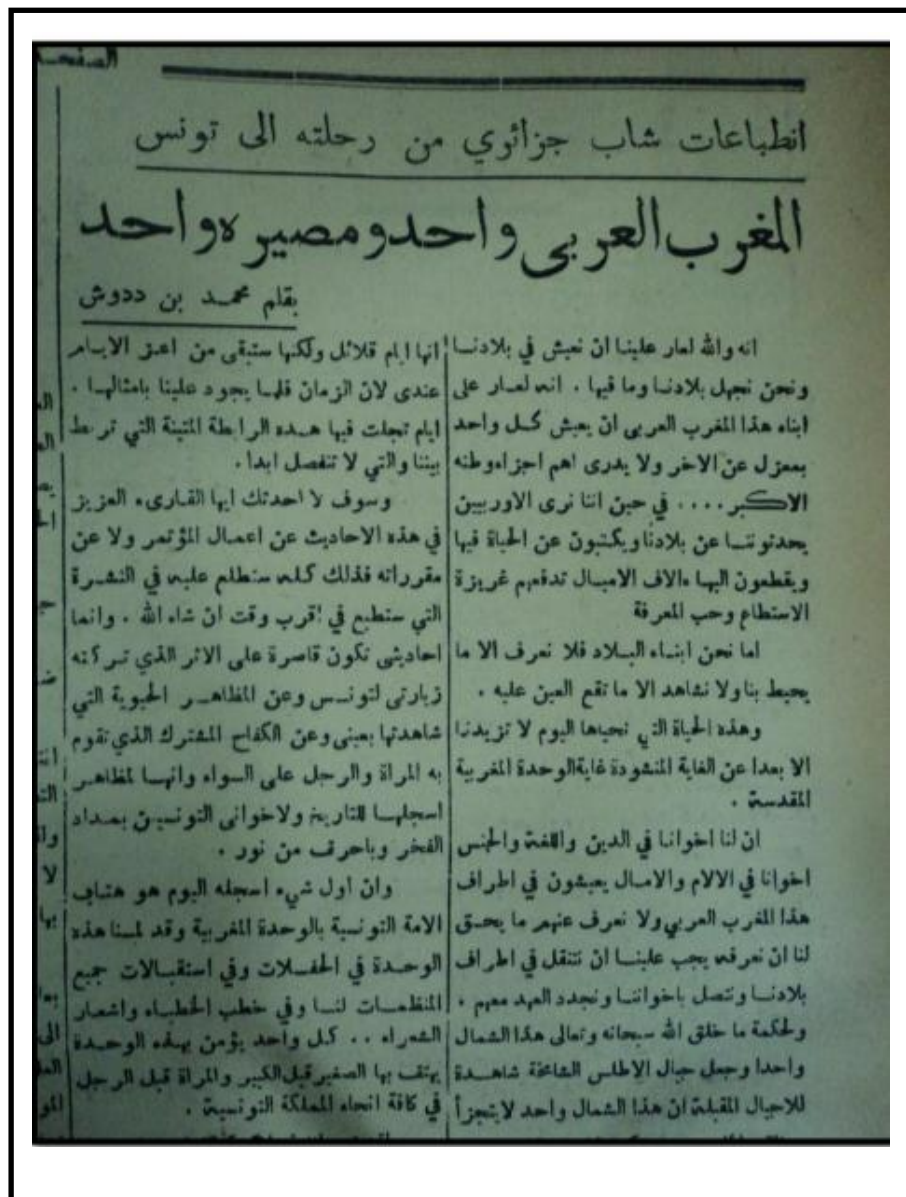 الصفحـة
انطباعات شاب جزائوي من رحلته الى تونس
المغرب العربي واحد ومصيره واحد
بقلم محمد بن ددوش
انه والله لعار علينا ان نعيش في بلادنا
ونحن نجهل بلادنا وما فيها . انه لعار على
ابناء هذا المغرب العربي ان يعيش كل واحد
بمعزل عن الاخر ولا يدرى اهم اجزاء وطنه
الاكبر .... في حين اننا نرى الاوربيين
يحدثوننا عن بلادنا ويكتبون عن الحياة فيها
ويقطعون اليها ءالاف الاميال تدفعهم غريزة
الاستطاع وحب المعرفة
اما نحن ابناء البلاد فلا نعرف الا ما
يحيط بنا ولا نشاهد الا ما تقع العين عليه .
وهذه الحياة التي نحياها اليوم لا تزيدنا
الا بعدا عن الغاية المنشودة غاية الوحدة المغربية
المقدسة .
ان لنا اخوانا في الدين واللغة والجنس
اخوانا في الالام والامال يعيشون في اطراف
هذا المغرب العربي ولا نعرف عنهم ما يحق
لنا ان نعرفه يجب علينا ان نتنقل في اطراف
بلادنا ونتصل باخواننا ونجدد العهد معهم .
ولحكمة ما خلق الله سبحانه وتعالى هذا الشمال
واحدا وجعل جبال الاطلس الشامخة شاهدة
للاجيال المقبلة ان هذا الشمال واحد لا يتجزأ
انها ايام قلائل ولكنها ستبقى من اعز الايام
عندى لان الزمان قلما يجود علينا بامثالها .
ايام تجلت فيها هذه الرابطة المتينة التي تربط
بيننا والتي لا تنفصل ابدا .
وسوف لا احدثك ايها القارىء العزيز
في هذه الاحاديث عن اعمال المؤتمر ولا عن
مقرراته فذلك كله ستطلع عليه في النشرة
التي ستطبع في اقرب وقت ان شاء الله . وانما
احاديثى تكون قاصرة على الاثر الذي تركته
زيارتى لتونس وعن المظاهر الحيوية التي
شاهدتها بعينى وعن الكفاح المشترك الذي تقوم
به المراة والرجل على السواء وانها لمظاهر
اسجلها للتاريخ ولاخوانى التونسيين بمداد
الفخر وباحرف من نور .
وان اول شيء اسجله اليوم هو هتاف
الامة التونسية بالوحدة المغربية وقد لمسنا هذه
الوحدة في الحفلات وفي استقبالات جميع
المنظمات لنا وفي خطب الخطباء واشعار
الشعراء .. كل واحد يؤمن بهذه الوحدة
يهتف بها الصغير قبل الكبير والمراة قبل الرجل
في كافة انحاء المملكة التونسية .